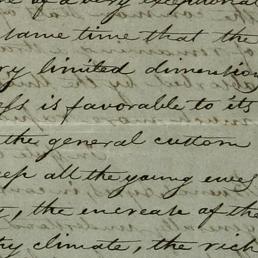 of a very exceptional
same time that the
very limited dimension
is favorable to its
the general custom
keep all the young ewes
, the encrease of the
climate, the rich